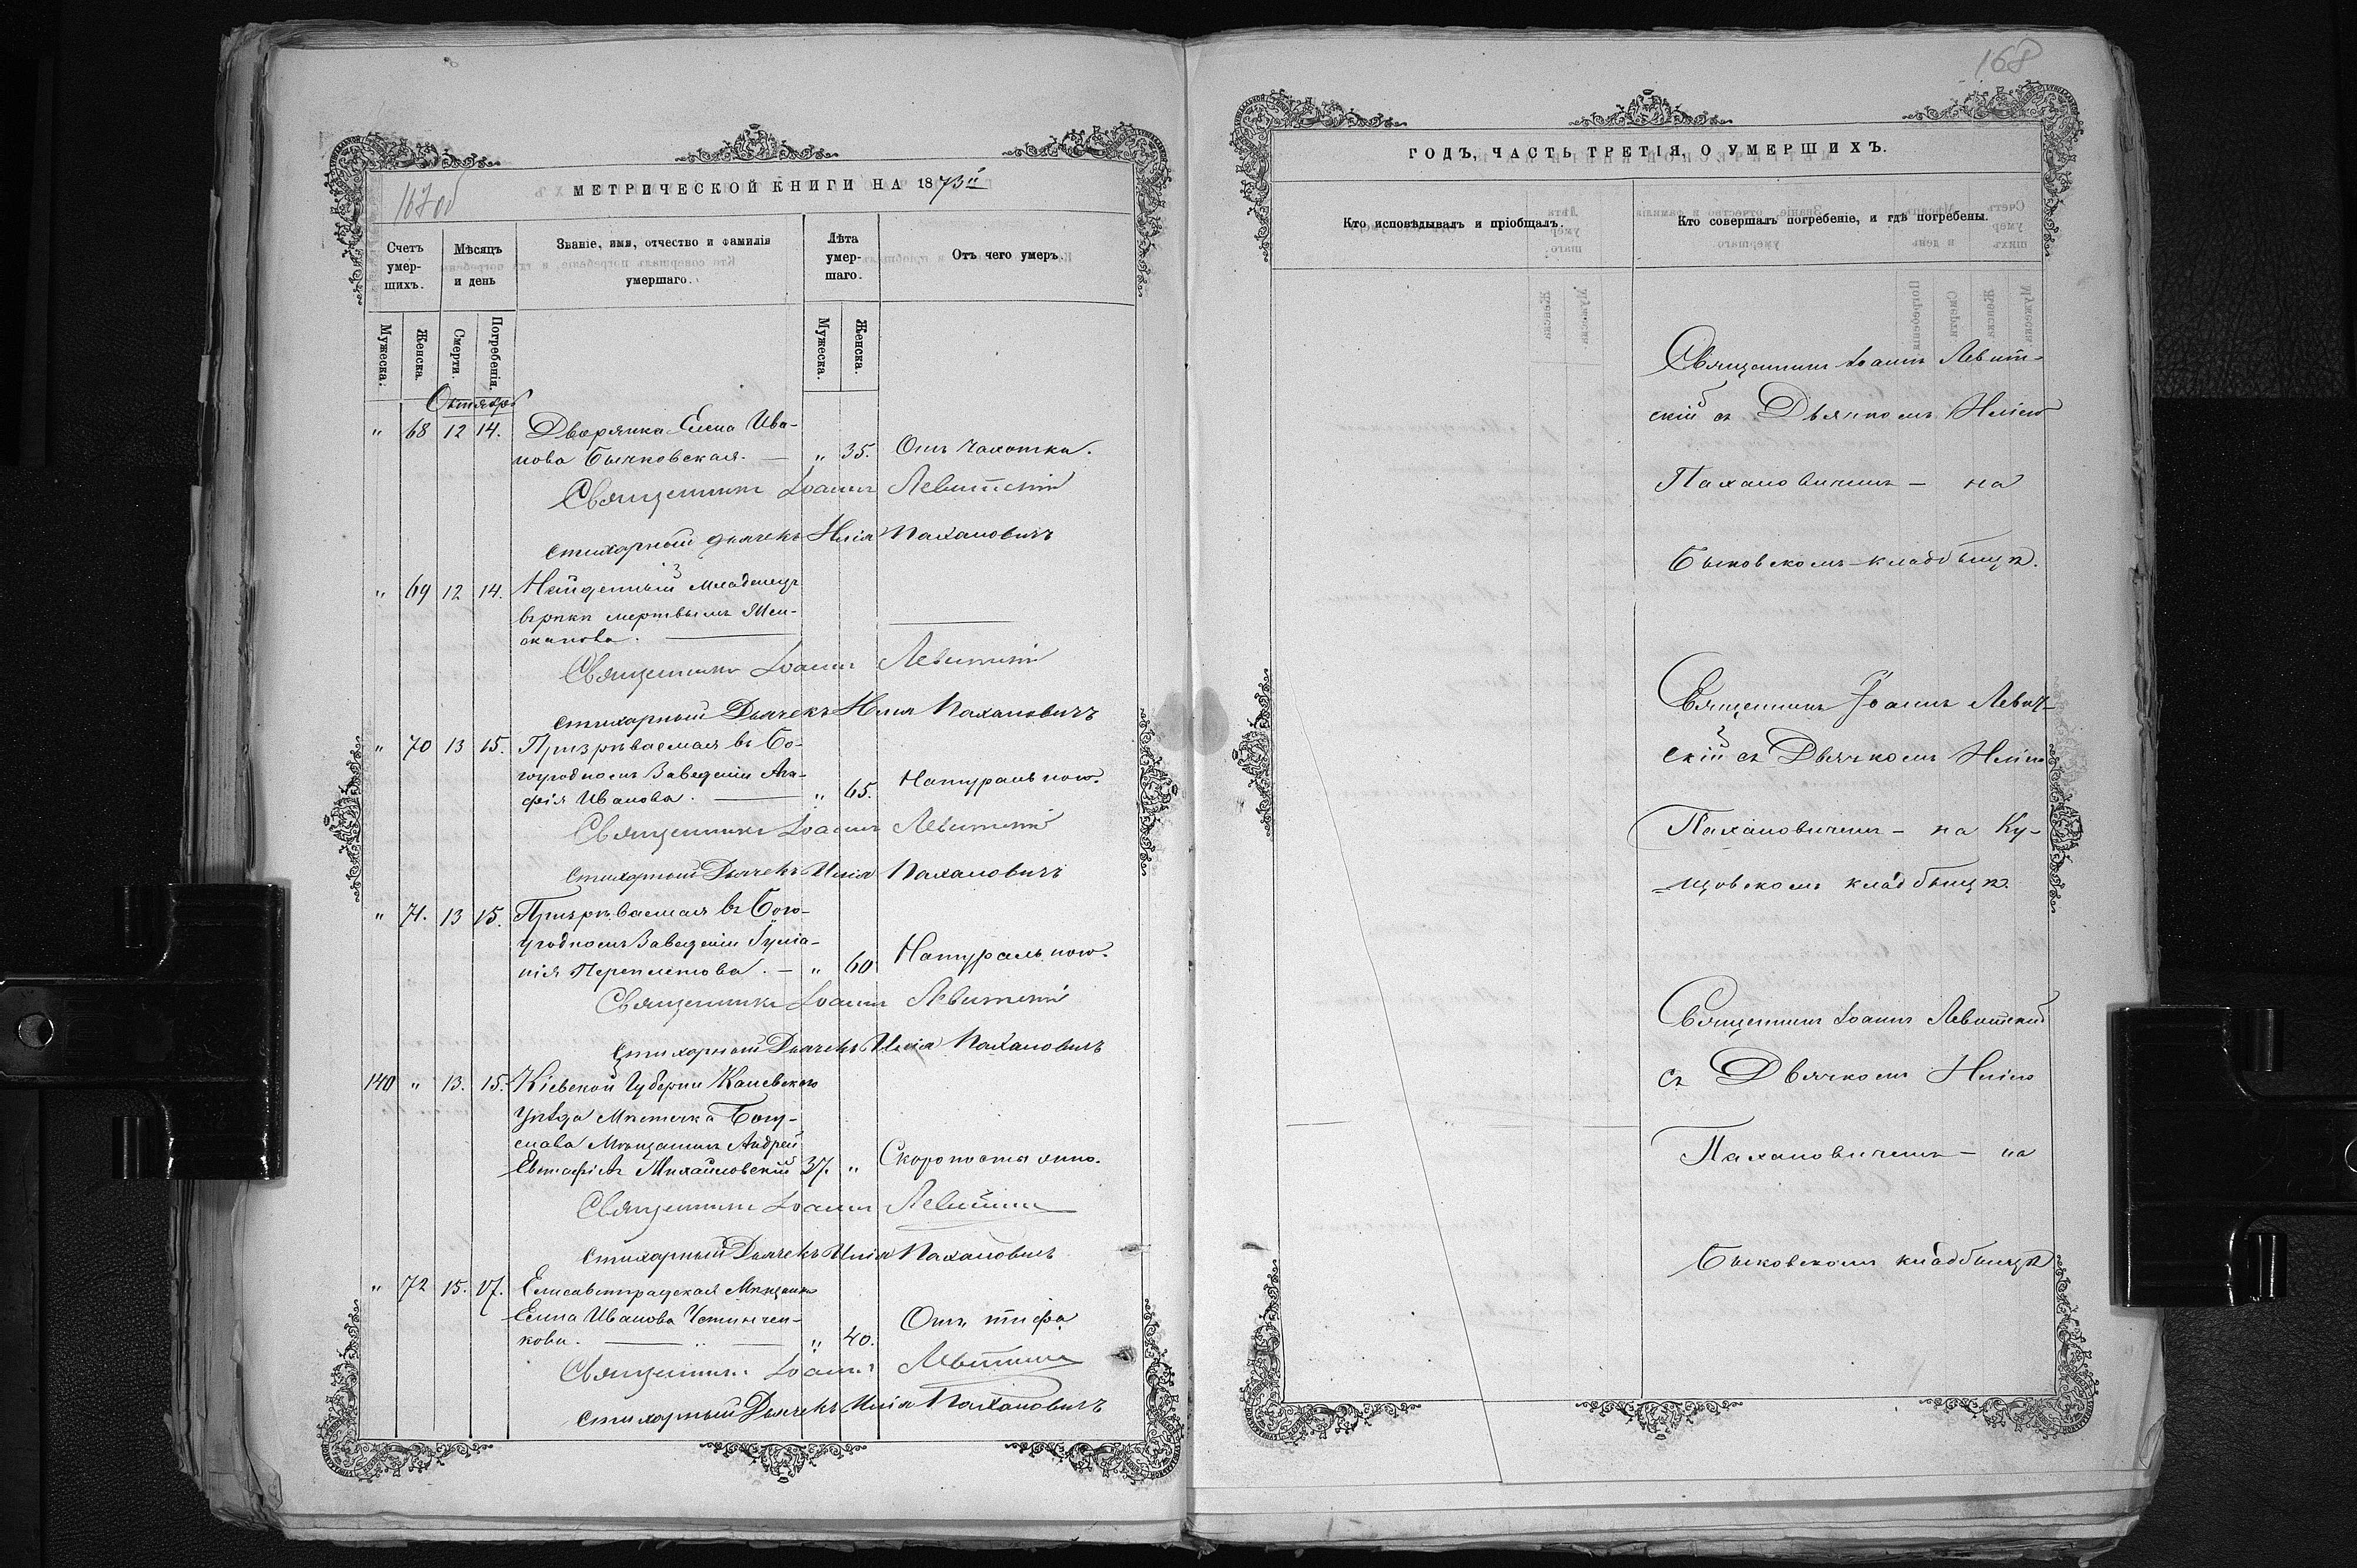 167 об
МЕТРИЧЕСКОЙ КНИГИ НА 1873й
Счетъ умер-шихъ.
Мѣсяцъ и день
Званіе, имя, отчество и фамилія умершаго.
Лѣта умер-шаго.
Отъ чего умеръ.
Мужеска.
Женска.
Смерти.
Погребенія.
Мужеска.
Женска.
Октябрь
" 68 12 14. Дворянка Елена Ива-
нова Бычковская. — " 35. Отъ чахотки.
Священникъ Іоаннъ Левитскій
Стихарный дьячекъ Илія Пахановичъ
" 69 12 14. Найденный младенецъ
въ рѣкѣ мертвымъ
Священникъ Іоаннъ Левитскій
Стихарный Дьячекъ Илія Пахановичъ
" 70 13 15. Призрѣваемая въ Бо-
гоугодномъ Заведеніи Ага-
фія Иванова. — " 65. Натуральною.
Священникъ Іоаннъ Левитскій
Стихарный Дьячекъ Илія Пахановичъ
" 71. 13 15. Призрѣваемая въ Бого-
угодномъ Заведеніи Іуліа-
нія Переплетова. — " 60 Натуральною.
Священникъ Іоаннъ Левитскій
Стихарный Дьячекъ Илія Пахановичъ
140 " 13. 15. Кіевской Губерніи Каневскаго
Уѣзда Мѣстечка Богу-
слава Мѣщанинъ Андрей
Евстафіевъ Михайловскій 37. " Скоропостижно.
Священникъ Іоаннъ Левитскій
Стихарный Дьячекъ Илія Пахановичъ
" 72 15. 17. Елисаветградская Мѣщанка
Елена Иванова
кова. — " 40. Отъ тифа
Священникъ Іоаннъ Левитскій
Стихарный Дьячекъ Илія Пахановичъ
168
ГОДЪ, ЧАСТЬ ТРЕТІЯ, О УМЕРШИХЪ.
Кто исповѣдывалъ и пріобщалъ.
Кто совершалъ погребеніе, и гдѣ погребены.
Священникъ Іоаннъ Левит-
скій съ Дьячкомъ Иліею
Пахановичемъ — на
Быковскомъ кладбыщѣ.
Священникъ Іоаннъ Левит-
скій съ Дьячкомъ Иліею
Пахановичемъ — на Ку-
щовскомъ кладбыщѣ.
Священникъ Іоаннъ Левитскій
съ Дьячкомъ Иліею
Пахановичемъ — на
Быковскомъ кладбыщѣ